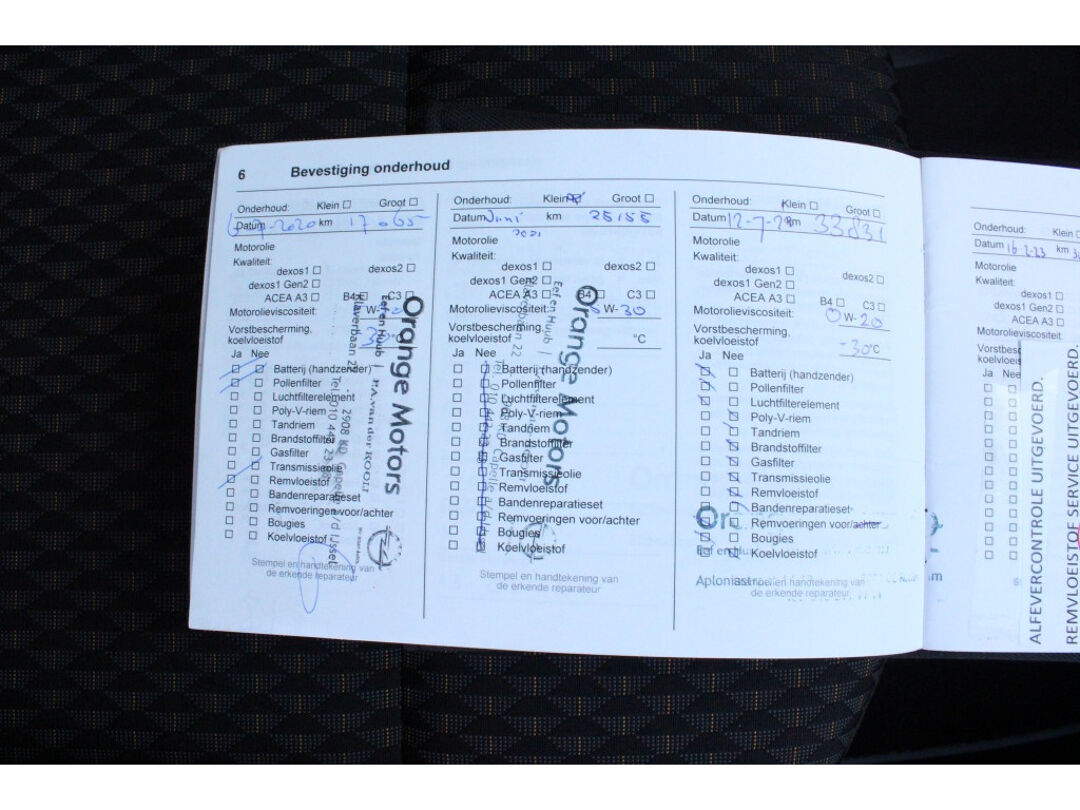 6 Bevestiging onderhoud
Onderhoud: Klein Groot
Datum 2020 km 17065
Motorolie
Kwaliteit:
dexos1 dexos2
dexos1 Gen2
ACEA A3 B4 C3
Motorolieviscositeit: W-
Vorstbescherming,
koelvloeistof
Ja Nee
Batterij (handzender)
Pollenfilter
Luchtfilterelement
Poly-V-riem
Tandriem
Brandstoffilter
Gasfilter
Transmissieolie
Remvloeistof
Bandenreparatieset
Remvoeringen voor/achter
Bougies
Koelvloeistof
Stempel en handtekening van
de erkende reparateur
Orange Motors
Onderhoud: Klein Groot
Datum Juni km 25155
2021
Motorolie
Kwaliteit:
dexos1 dexos2
dexos1 Gen2
ACEA A3 B4 C3
Motorolieviscositeit: W-30
Vorstbescherming,
koelvloeistof °C
Ja Nee
Batterij (handzender)
Pollenfilter
Luchtfilterelement
Poly-V-riem
Tandriem
Brandstoffilter
Gasfilter
Transmissieolie
Remvloeistof
Bandenreparatieset
Remvoeringen voor/achter
Bougies
Koelvloeistof
Stempel en handtekening van
de erkende reparateur
Orange Motors
Onderhoud: Klein Groot
Datum km 33831
Motorolie
Kwaliteit:
dexos1 dexos2
dexos1 Gen2
ACEA A3 B4 C3
Motorolieviscositeit: 0 W-20
Vorstbescherming,
koelvloeistof -30°C
Ja Nee
Batterij (handzender)
Pollenfilter
Luchtfilterelement
Poly-V-riem
Tandriem
Brandstoffilter
Gasfilter
Transmissieolie
Remvloeistof
Bandenreparatieset
Remvoeringen voor/achter
Bougies
Koelvloeistof
Stempel en handtekening van
de erkende reparateur
Onderhoud: Klein
Datum km
Motorolie
Kwaliteit:
dexos1
dexos1 Gen2
ACEA A3
Motorolieviscositeit:
Ja Nee
ALFEVERCONTROLE UITGEVOERD.
REMVLOEISTOF SERVICE UITGEVOERD.